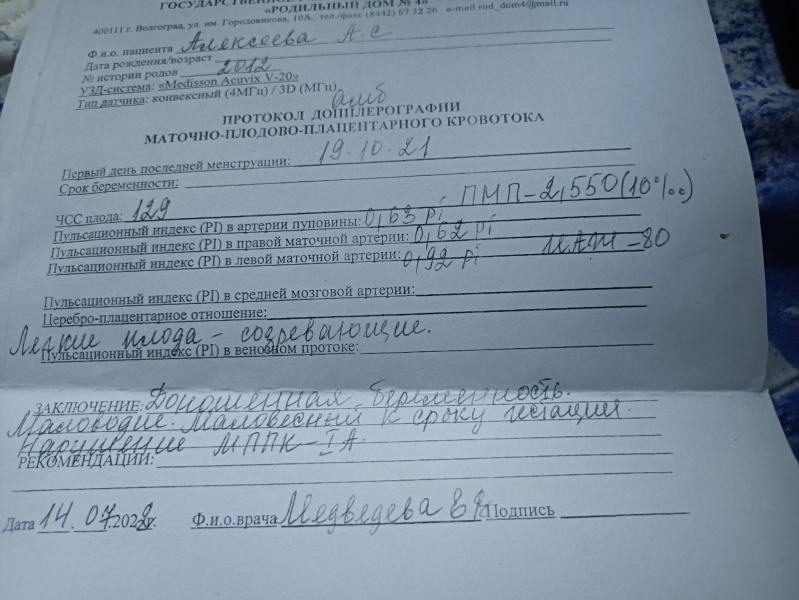 «РОДИЛЬНЫЙ ДОМ № 4»
400111 г. Волгоград, ул. им. Городовикова, 10А. тел./факс (8442) 67 32 26 e-mail rod_dom4@mail.ru
Ф.и.о. пациента Алексеева А. С
Дата рождения/возраст
№ истории родов 2012
УЗД-система: «Medisson Acuvix V-20»
Тип датчика: конвексный (4МГц) / 3D (МГц)
амб
ПРОТОКОЛ ДОППЛЕРОГРАФИИ
МАТОЧНО-ПЛОДОВО-ПЛАЦЕНТАРНОГО КРОВОТОКА
Первый день последней менструации: 19.10.21
Срок беременности:
ЧСС плода: 129 ПМП-2,550 (10‰)
Пульсационный индекс (PI) в артерии пуповины: 0,63 pi
Пульсационный индекс (PI) в правой маточной артерии: 0,62 pi
Пульсационный индекс (PI) в левой маточной артерии: 0,92 pi -80
Пульсационный индекс (PI) в средней мозговой артерии:
Церебро-плацентарное отношение:
Легкие плода - созревающие.
Пульсационный индекс (PI) в венозном протоке:
ЗАКЛЮЧЕНИЕ: Доношенная беременность.
Маловодие. Маловесный к сроку гестации.
Нарушение МППК-IА.
РЕКОМЕНДАЦИИ:
Дата 14.07.2022г. Ф.и.о.врача Медведева Подпись